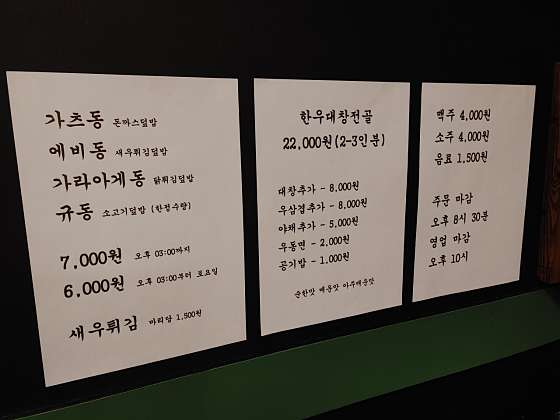 가츠동 돈까스덮밥
에비동 새우튀김덮밥
가라아게동 닭튀김덮밥
규동 소고기덮밥 (한정수량)
7,000원 오후 03:00까지
6,000원 오후 03:00부터 토요일
새우튀김 마리당 1,500원
한우대창전골
22,000원(2-3인분)
대창추가 - 8,000원
우삼겹추가 - 8,000원
야채추가 - 5,000원
우동면 - 2,000원
공기밥 - 1,000원
순한맛 매운맛 아주매운맛
맥주 4,000원
소주 4,000원
음료 1,500원
주문 마감
오후 8시 30분
영업 마감
오후 10시